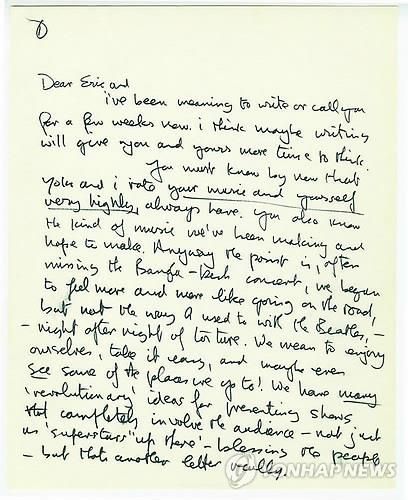 ①
Dear Eric and
i've been meaning to write or call you
for a few weeks now. i think maybe writing
will give you and yours more time to think.
You must know by now that
Yoko and i rate your music and yourself
very highly, always have. You also know
the kind of music we've been making and
hope to make. Anyway the point is, after
missing the Bangla-Desh concert, we began
to feel more and more like going on the road,
but not the way I used to with the Beatles, –
– night after night of torture. We mean to enjoy
ourselves, take it easy, and maybe even
see some of the places we go to! We have many
'revolutionary' ideas for presenting shows
that completely involve the audience – not just
as 'superstars' 'up there' – blessing the people
– but that's another letter really.
YONHAPNEWS
YONHAPNEWS